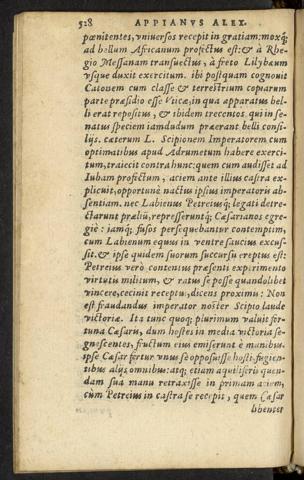 528 APPIANVS ALEX.
pœnitentes, vniuersos recepit in gratiam: moxq́;
ad bellum Africanum profectus est: & à Rhe-
gio Messanam transuectus, à freto Lilybæum
vsque duxit exercitum. ibi postquam cognouit
Catonem cum classe & terrestrium copiarum
parte præsidio esse Vticæ, in qua apparatus bel-
li erat repositus, & ibidem trecentos qui in se-
natus speciem iamdudum præerant belli consi-
lijs. cæterum L. Scipionem Imperatorem cum
optimatibus apud Adrumetum habere exerci-
tum, traiecit contra hunc: quem cum audisset ad
Iubam profectum, aciem ante illius castra ex-
plicuit, opportunè nactus ipsius imperatoris ab-
sentiam. nec Labienus Petreiusq́; legati detre-
ctarunt præliũ, represseruntq́; Cæsarianos egre-
giè: iamq́; fusos persequebantur contemptim,
cum Labienum equus in ventre saucius excus-
sit. & ipse quidem suorum succursu ereptus est:
Petreius verò contentus præsenti experimento
virtutis militum, & ratus se posse quandolibet
vincere, cecinit receptui, dicens proximis: Non
est fraudandus imperator noster Scipio laude
victoriæ. Ita tunc quoq; plurimum valuit for-
tuna Cæsaris, dum hostes in media victoria se-
gnescentes, fructum eius emiserunt è manibus.
ipse Cæsar fertur vnus se opposuisse hosti, fugien-
tibus alijs omnibus: atq; etiam aquiliferũ quen-
dam sua manu retraxisse in primam aciem,
cum Petreius in castra se recepit, quem Cæsar
libenter